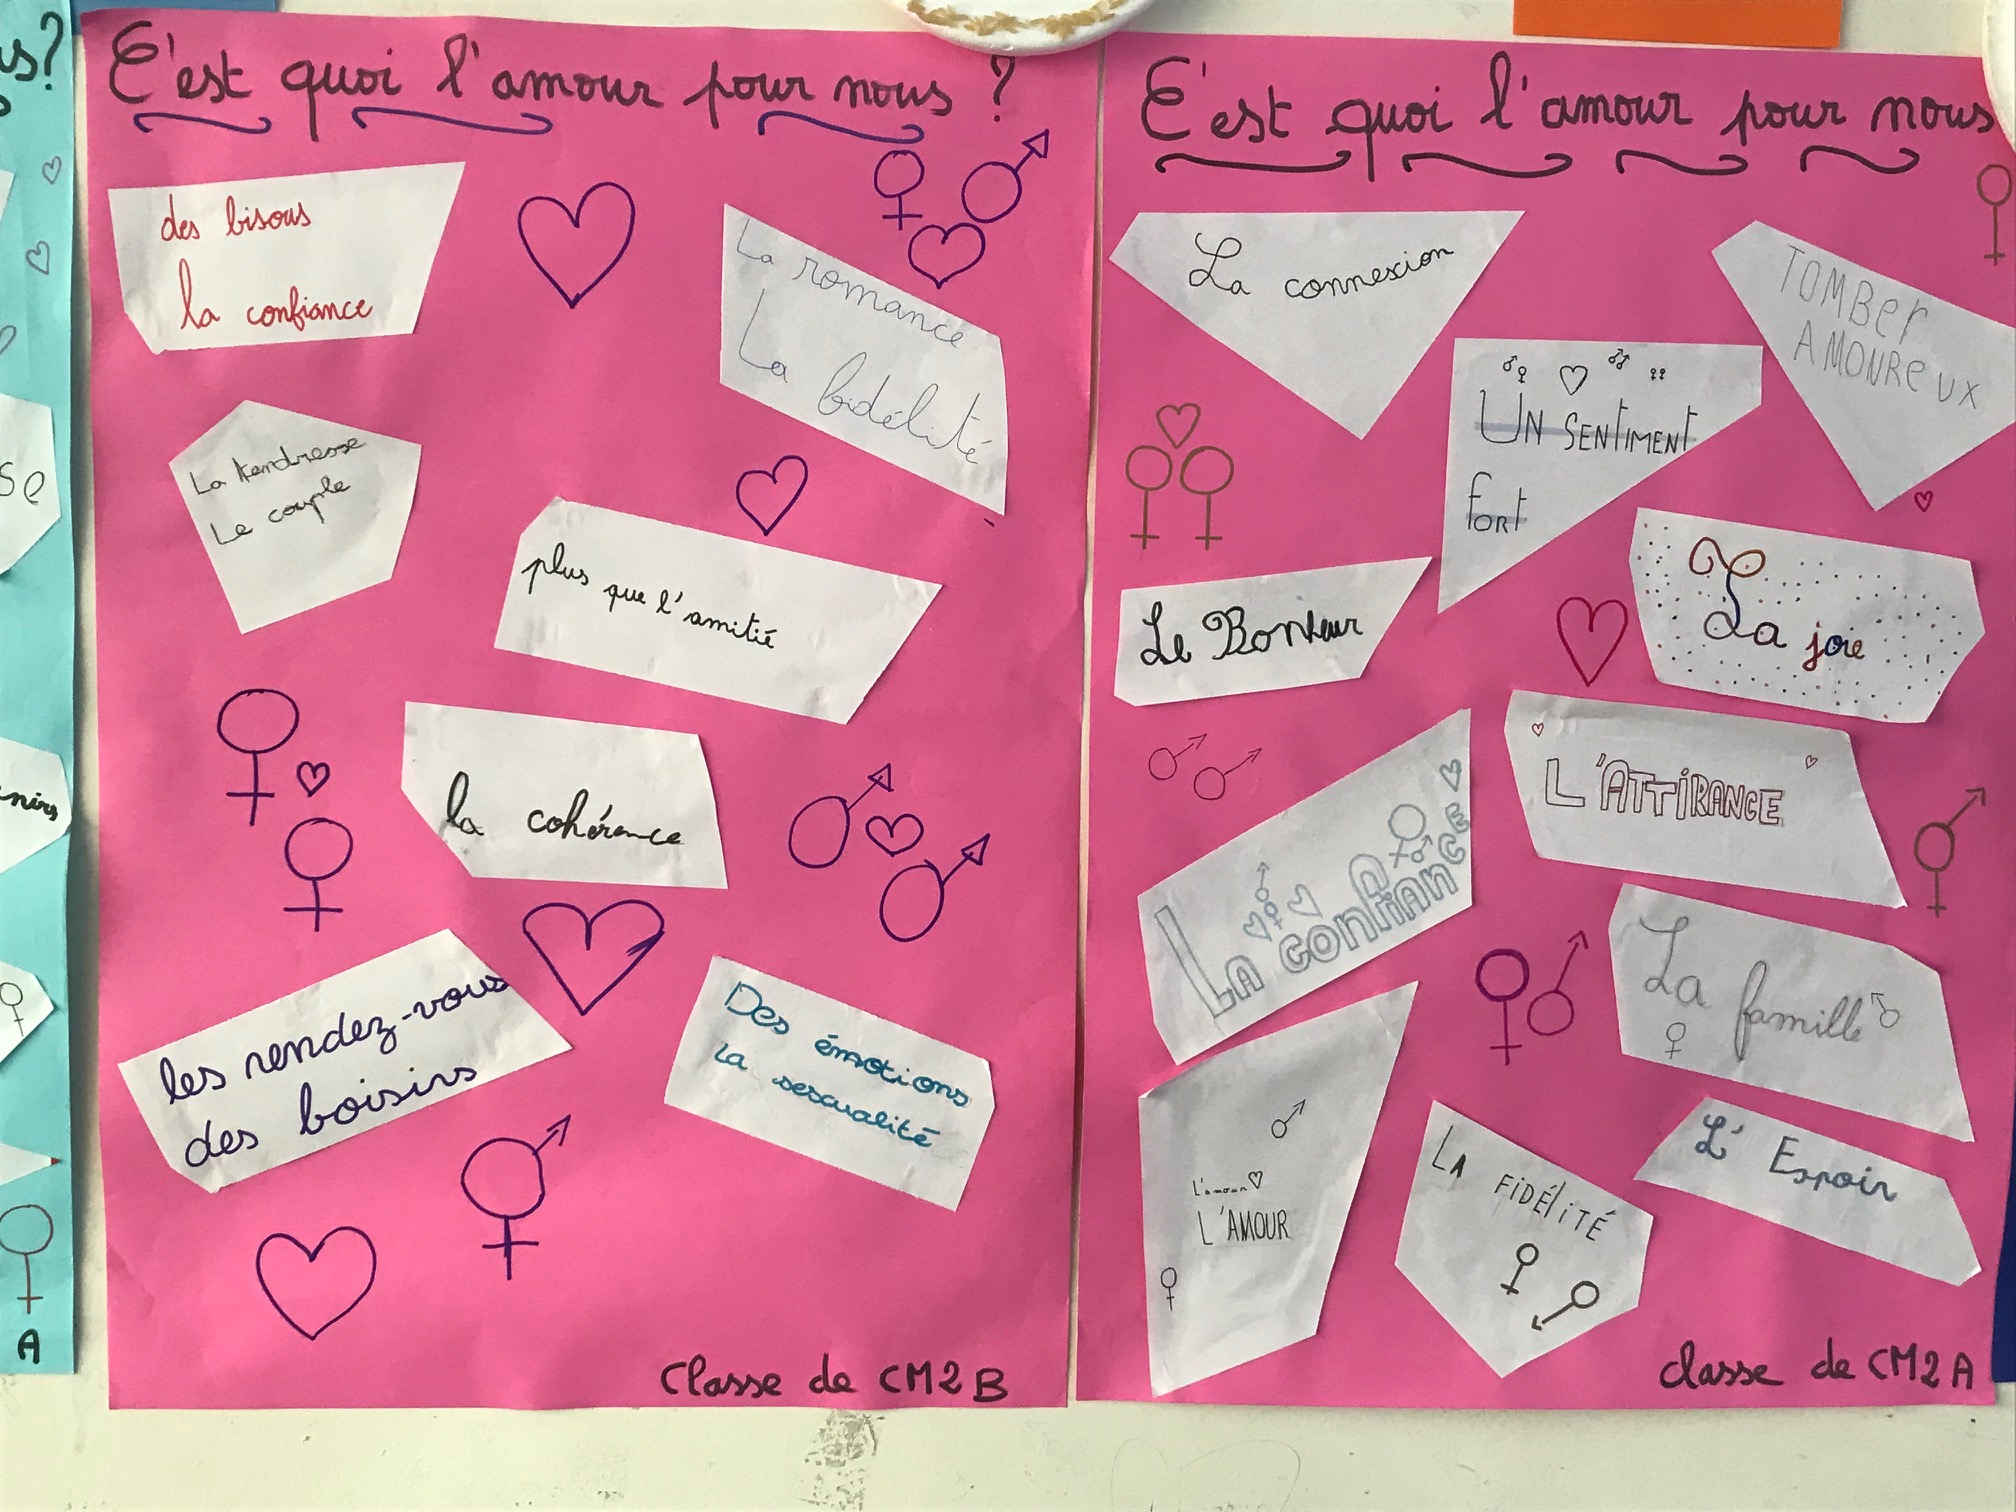 us?
se
nirs
A
C'est quoi l'amour pour nous ?
des bisous
la confiance
La romance
La fidélité
La tendresse
Le couple
plus que l'amitié
la cohérence
les rendez-vous
des boisirs
Des émotions
La sescualité
Classe de CM2 B
C'est quoi l'amour pour nous
La connexion
TOMBer
AMOUReux
UN SENTIMENT
FORT
Le Bonheur
La joie
L'ATTIRANCE
LA CONFIANCE
La famille
L'amour
L'AMOUR
LA FIDÉLITÉ
L'Espoir
classe de CM2 A